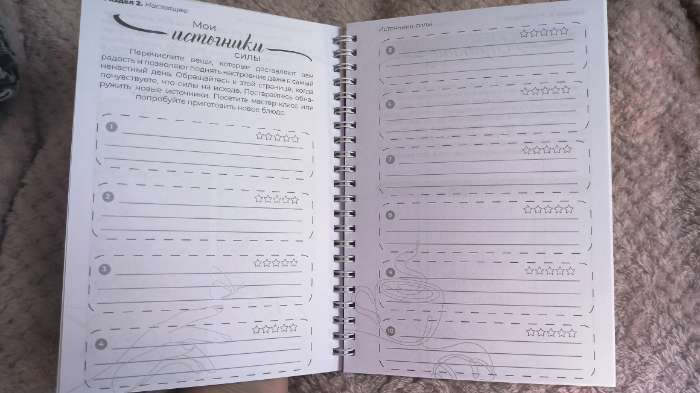 Раздел 2. Настоящее
Мои
источники
силы
Перечислите вещи, которые доставляют вам
радость и позволяют поднять настроение даже в самый
ненастный день. Обращайтесь к этой странице, когда
почувствуете, что силы на исходе. Постарайтесь обна-
ружить новые источники. Посетите мастер-класс или
попробуйте приготовить новое блюдо.
1
2
3
4
Источники силы
5
6
7
8
9
10